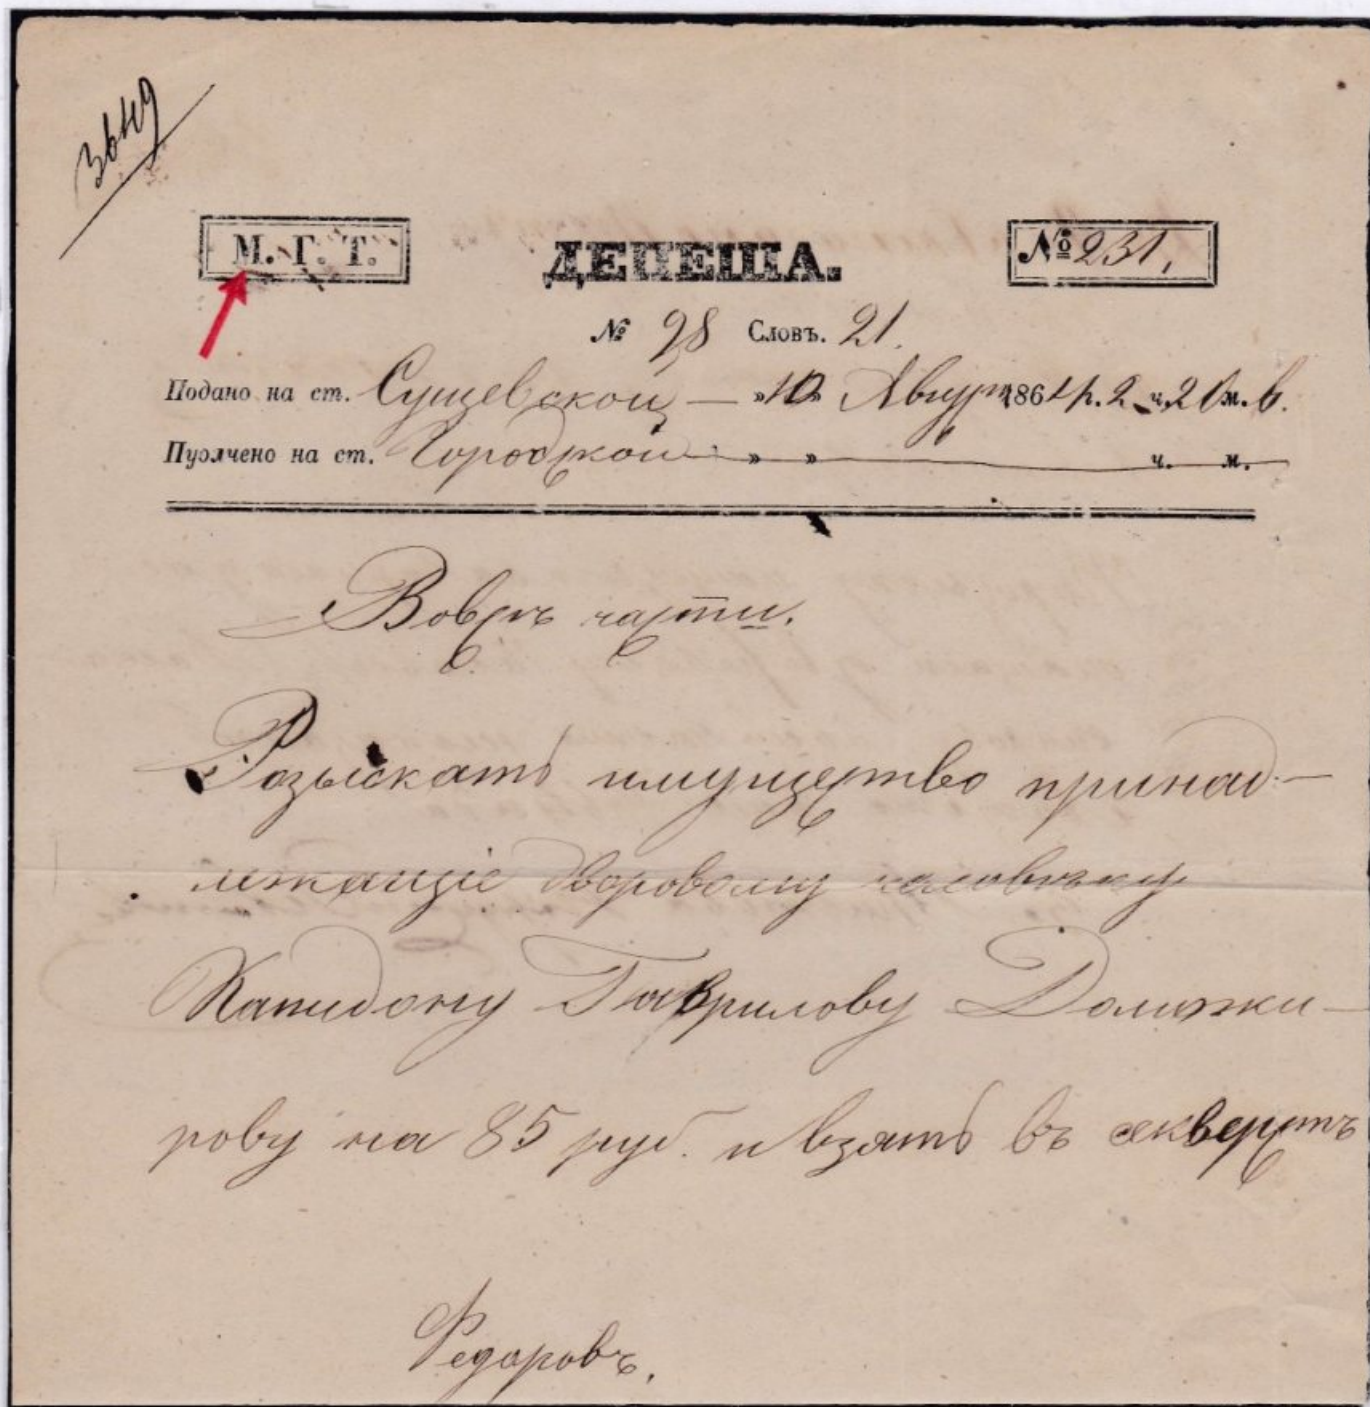 3649
М. Г. Т. ДЕПЕША. № 231.
№ 98 Словъ. 21.
Подано на ст. Сущевской — » 10 » Август 1861 г. 2 ч. 20 м. в.
Пуолчено на ст. Городской » » ч. м.
Во всѣ части.
Розыскать имущество принад-
лежащіе дворовому человѣку
Капидону Гаврилову Доможи-
рову на 85 руб. и взять въ секвертъ
Федоровъ.